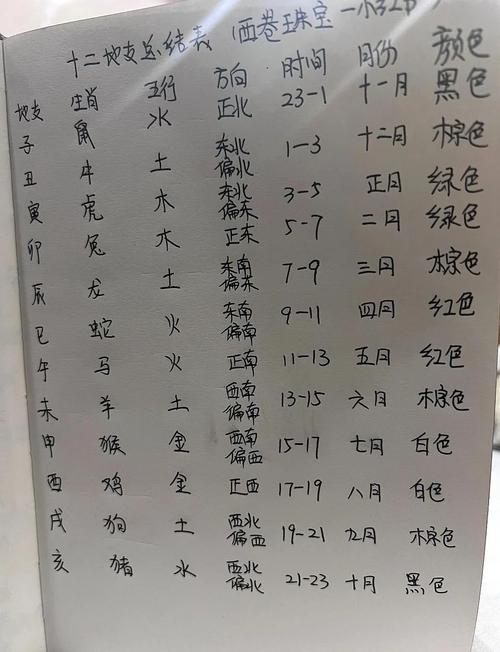 十二地支总结表 西卷珠宝一小
地支 生肖 五行 方向 时间 月份 颜色
子 鼠 水 正北 23-1 十一月 黑色
丑 牛 土 东北偏北 1-3 十二月 棕色
寅 虎 木 东北偏东 3-5 正月 绿色
卯 兔 木 正东 5-7 二月 绿色
辰 龙 土 东南偏东 7-9 三月 棕色
巳 蛇 火 东南偏南 9-11 四月 红色
午 马 火 正南 11-13 五月 红色
未 羊 土 西南偏南 13-15 六月 棕色
申 猴 金 西南偏西 15-17 七月 白色
酉 鸡 金 正西 17-19 八月 白色
戌 狗 土 西北偏西 19-21 九月 棕色
亥 猪 水 西北偏北 21-23 十月 黑色